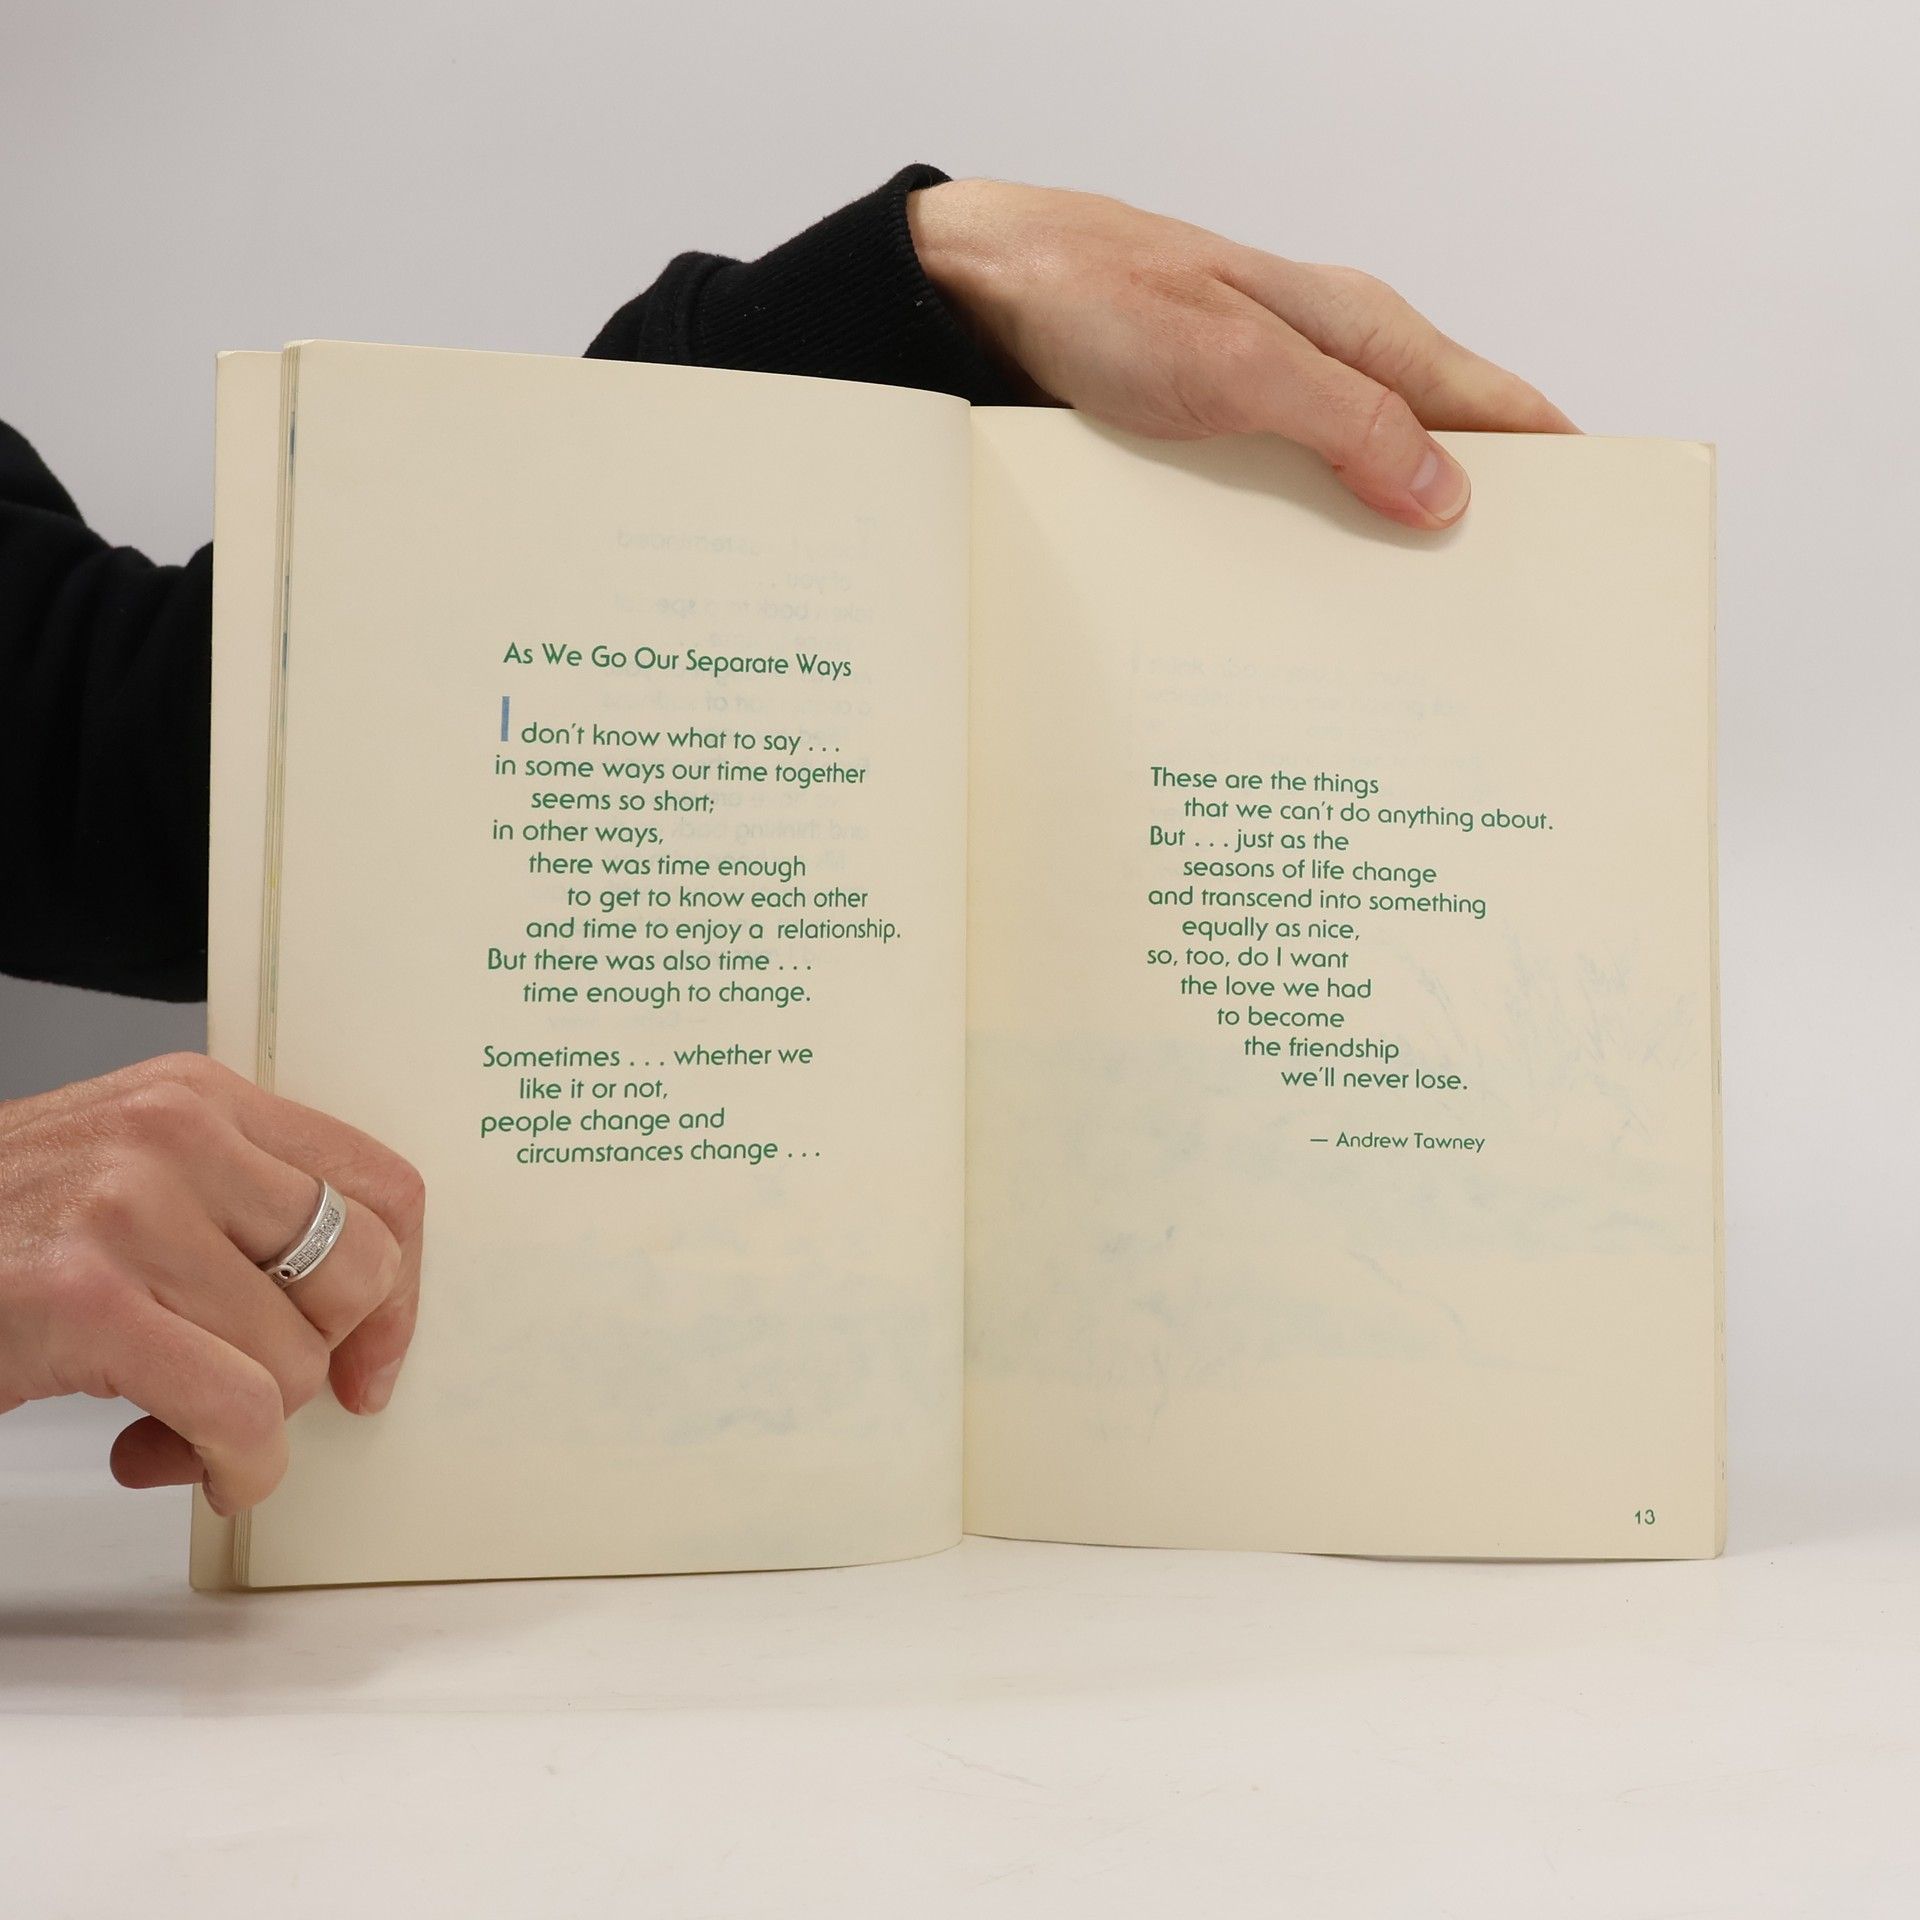 As We Go Our Separate Ways
I don't know what to say . . .
in some ways our time together
seems so short;
in other ways,
there was time enough
to get to know each other
and time to enjoy a relationship.
But there was also time . . .
time enough to change.
Sometimes . . . whether we
like it or not,
people change and
circumstances change . . .
These are the things
that we can't do anything about.
But . . . just as the
seasons of life change
and transcend into something
equally as nice,
so, too, do I want
the love we had
to become
the friendship
we'll never lose.
— Andrew Tawney
13